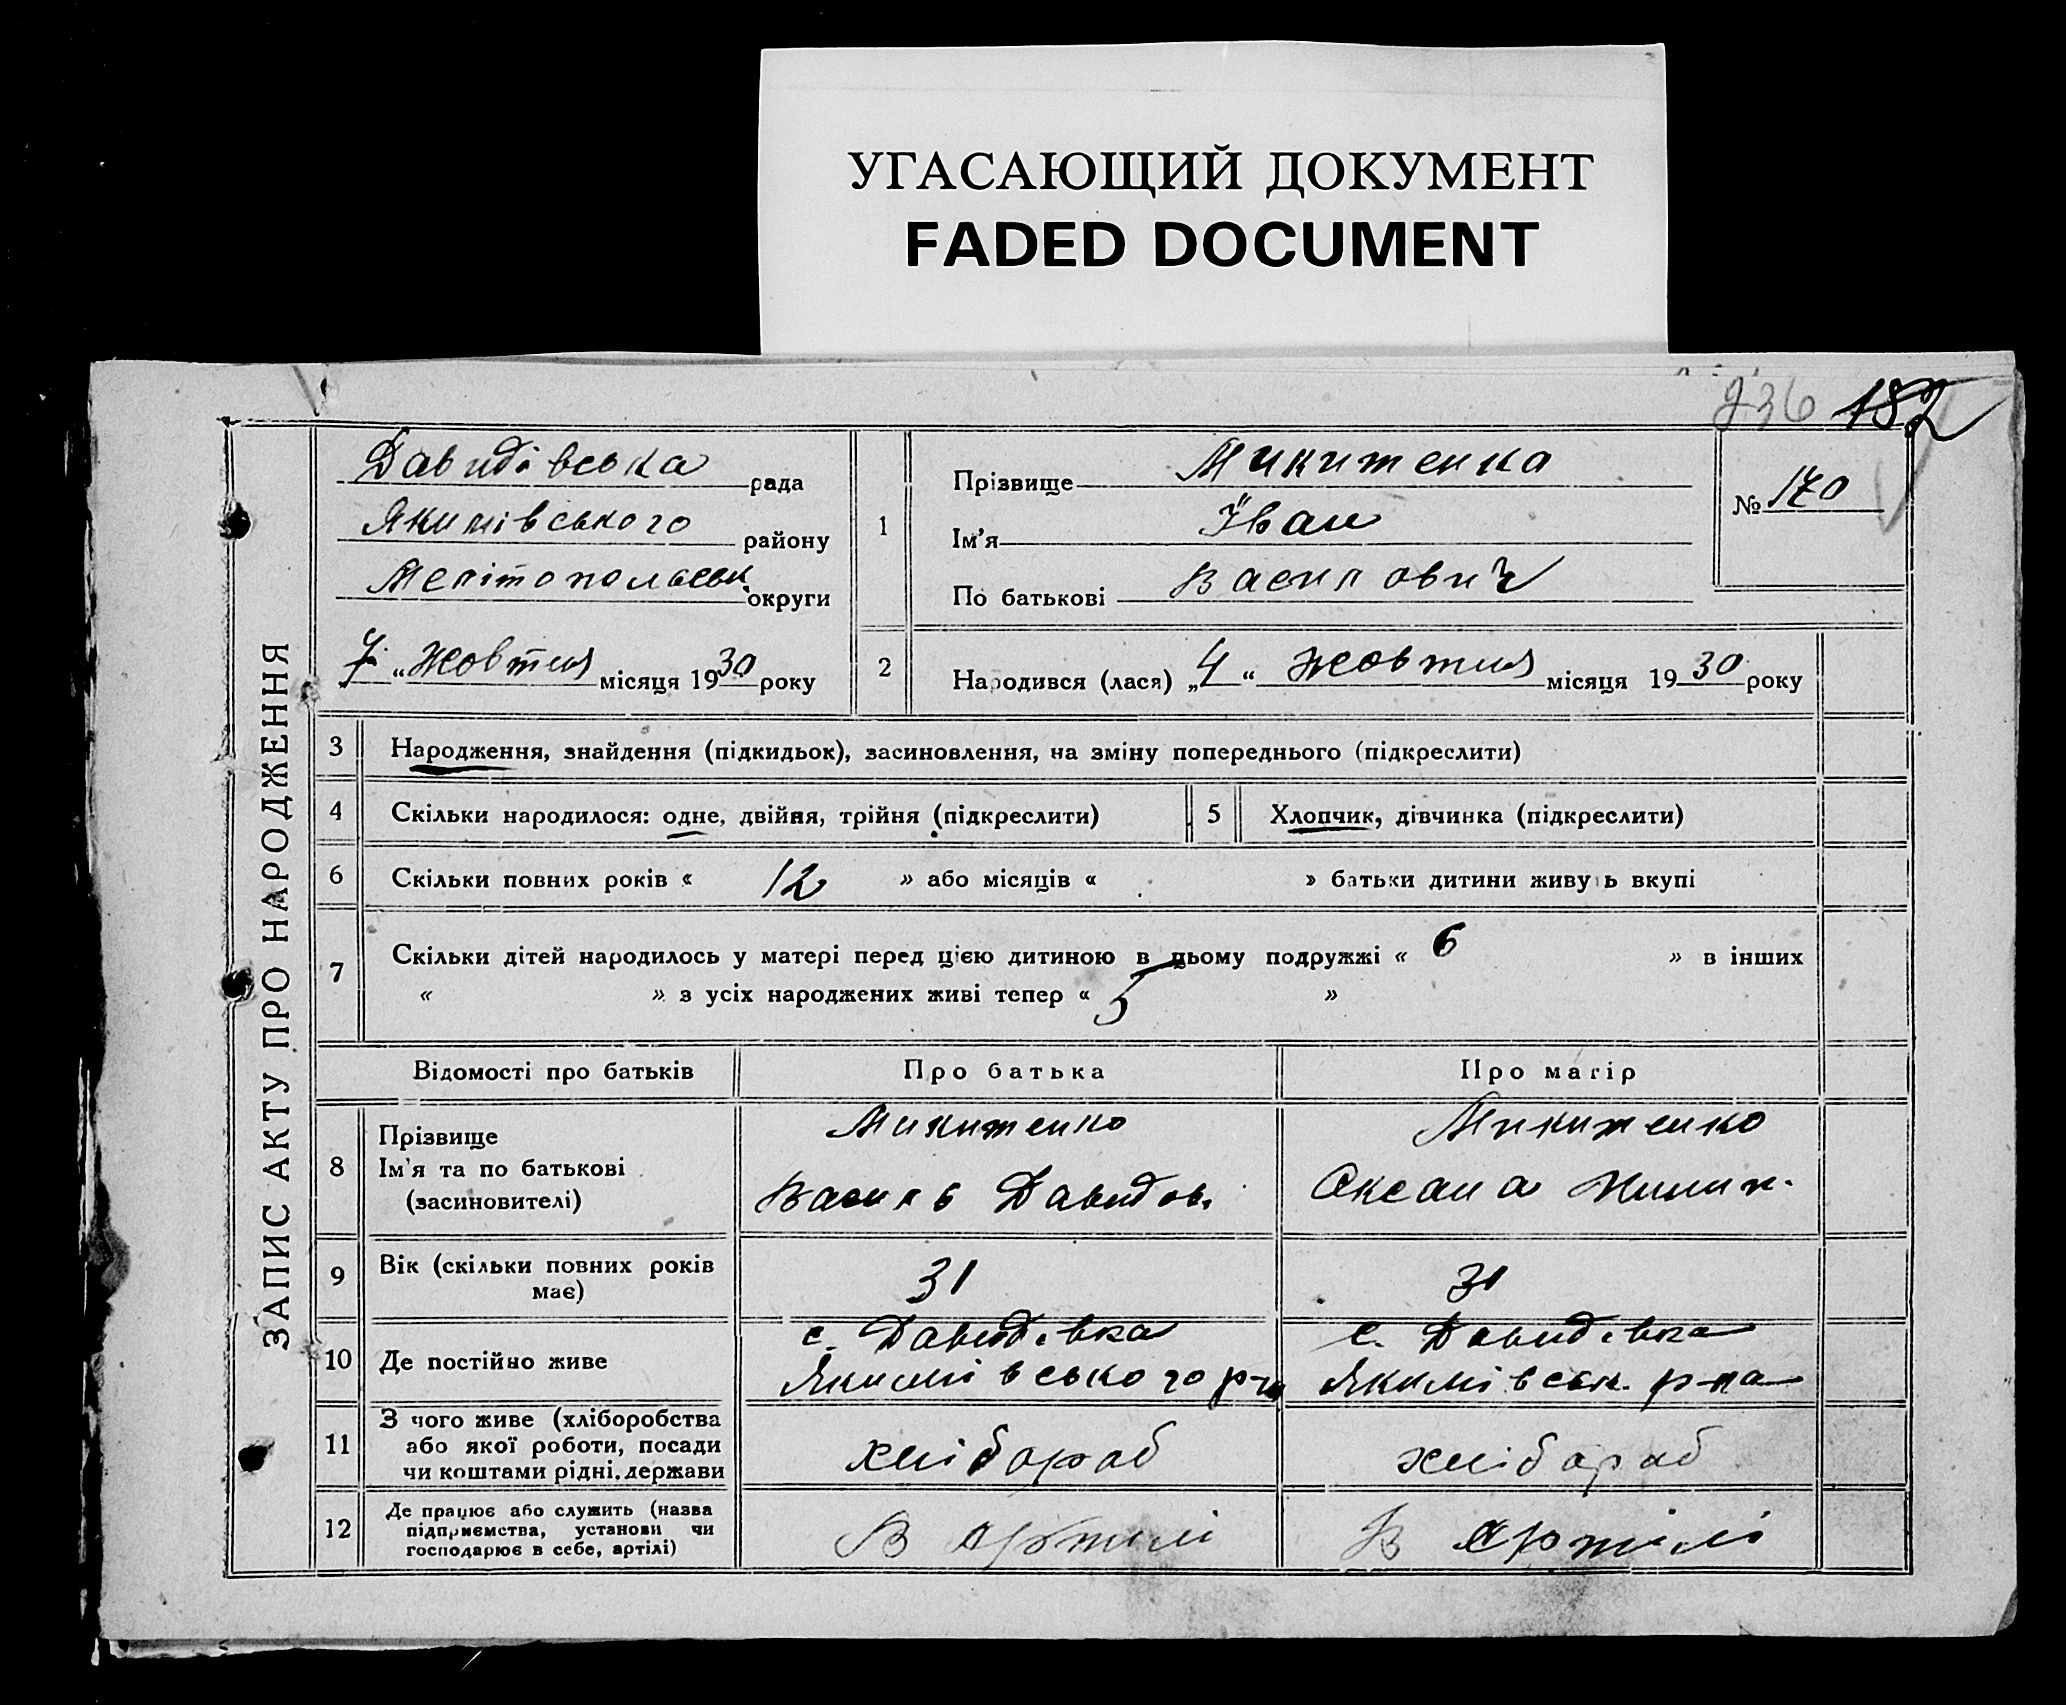 УГАСАЮЩИЙ ДОКУМЕНТ
FADED DOCUMENT
936 182
ЗАПИС АКТУ ПРО НАРОДЖЕННЯ
Давидівська рада
Якимівського району
Мелітопольськ. округи
7 “ жовтня місяця 1930 року
1 Прізвище Микитенко
Ім'я Іван
По батькові Василович
№ 170
2 Народився (лася) „4“ жовтня місяця 1930 року
3 Народження, знайдення (підкидьок), засиновлення, на зміну попереднього (підкреслити)
4 Скільки народилося: одне, двійня, трійня (підкреслити) 5 Хлопчик, дівчинка (підкреслити)
6 Скільки повних років « 12 » або місяців « » батьки дитини живуть вкупі
7 Скільки дітей народилось у матері перед цією дитиною в цьому подружжі « 6 » в інших
« » з усіх народжених живі тепер « 5 »
Відомості про батьків Про батька Про матір
8 Прізвище Микитенко Микитенко
Ім'я та по батькові Василь Давидов. Оксана
(засиновителі)
9 Вік (скільки повних років має) 31 31
10 Де постійно живе с. Давидівка с. Давидівка
Якимівського р-на Якимівськ. р-на
11 З чого живе (хліборобства хлібороб хлібороб
або якої роботи, посади
чи коштами рідні, держави
12 Де працює або служить (назва В Артилі В Артілі
підприємства, установи чи
господарює в себе, артілі)